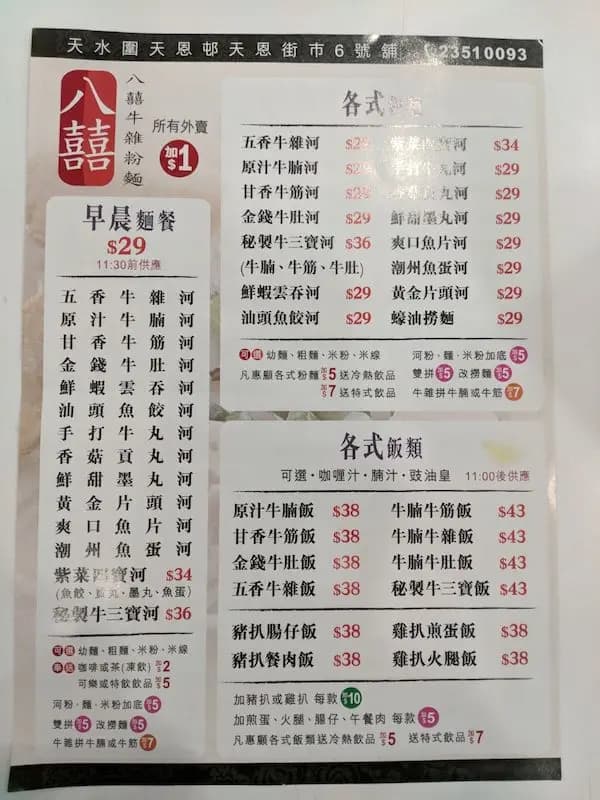 天水圍天恩邨天恩街市6號舖 23510093
八囍
八囍牛雜粉麵
所有外賣
加$1
早晨麵餐
$29
11:30前供應
五香牛雜河
原汁牛腩河
甘香牛筋河
金錢牛肚河
鮮蝦雲吞河
汕頭魚餃河
手打牛丸河
香菇貢丸河
鮮甜墨丸河
黃金片頭河
爽口魚片河
潮州魚蛋河
紫菜四寶河 $34
(魚餃、貢丸、墨丸、魚蛋)
秘製牛三寶河 $36
可選 幼麵、粗麵、米粉、米線
咖啡或茶(凍飲) 加$2
可樂或特飲飲品 加$5
河粉、麵、米粉加底 加$5
雙拼 加$5 改撈麵 加$5
牛雜拼牛腩或牛筋 加$7
各式
五香牛雜河 $29 紫菜四寶河 $34
原汁牛腩河 $29 手打牛丸河 $29
甘香牛筋河 $29 香菇貢丸河 $29
金錢牛肚河 $29 鮮甜墨丸河 $29
秘製牛三寶河 $36 爽口魚片河 $29
(牛腩、牛筋、牛肚) 潮州魚蛋河 $29
鮮蝦雲吞河 $29 黃金片頭河 $29
汕頭魚餃河 $29 蠔油撈麵 $29
可選 幼麵、粗麵、米粉、米線 河粉、麵、米粉加底 加$5
凡惠顧各式粉麵 加$5 送冷熱飲品 雙拼 加$5 改撈麵 加$5
加$7 送特式飲品 牛雜拼牛腩或牛筋 加$7
各式飯類
可選・咖喱汁・腩汁・豉油皇 11:00後供應
原汁牛腩飯 $38 牛腩牛筋飯 $43
甘香牛筋飯 $38 牛腩牛雜飯 $43
金錢牛肚飯 $38 牛腩牛肚飯 $43
五香牛雜飯 $38 秘製牛三寶飯 $43
豬扒腸仔飯 $38 雞扒煎蛋飯 $38
豬扒餐肉飯 $38 雞扒火腿飯 $38
加豬扒或雞扒 每款 加$10
加煎蛋、火腿、腸仔、午餐肉 每款 加$5
凡惠顧各式飯類送冷熱飲品 加$5 送特式飲品 加$7